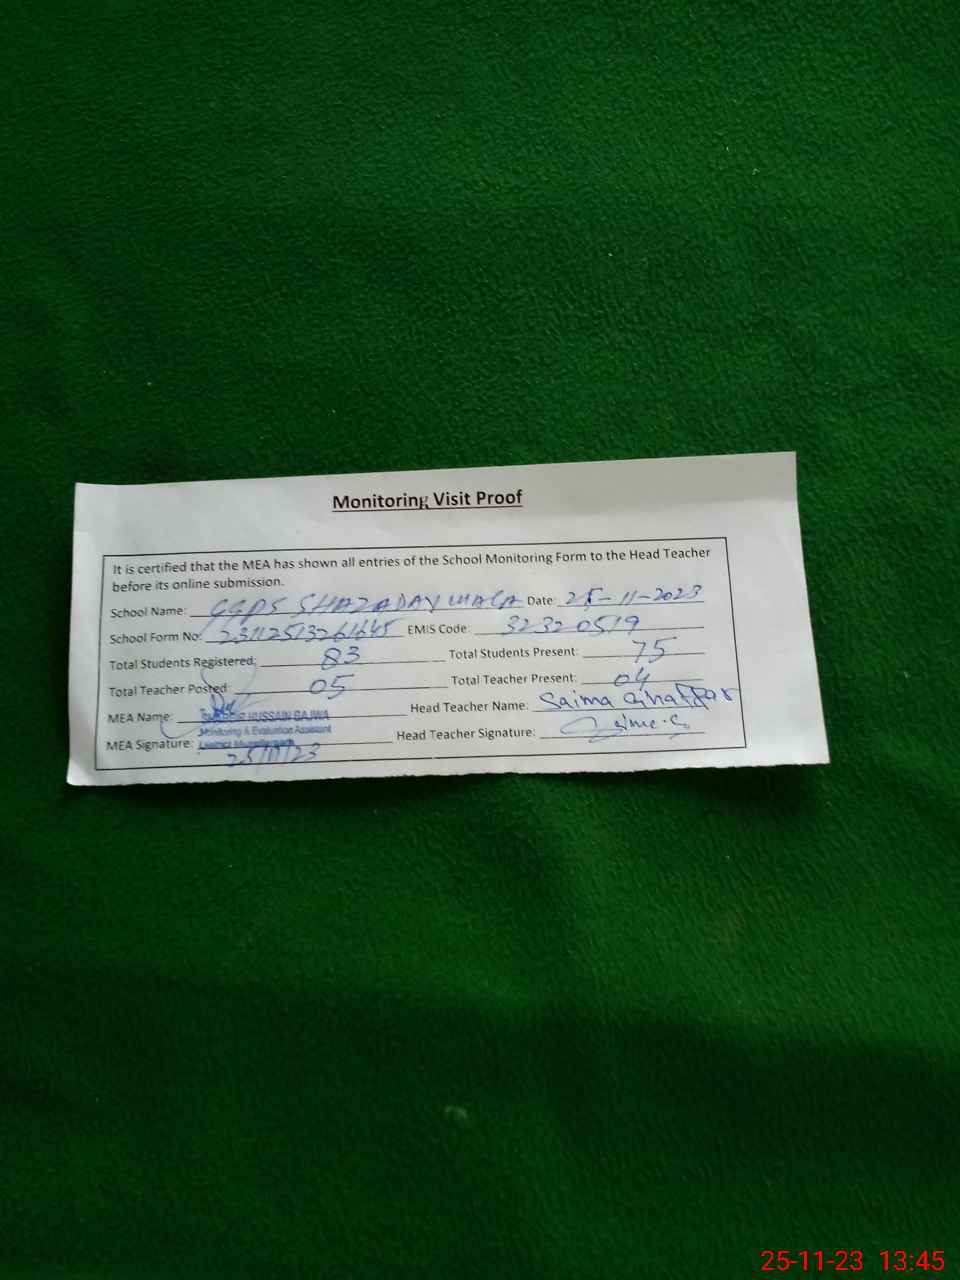 Monitoring Visit Proof
It is certified that the MEA has shown all entries of the School Monitoring Form to the Head Teacher
before its online submission.
School Name: GGPS SHAZADAY WALA Date: 25-11-2023
School Form No: EMIS Code: 32320519
Total Students Registered: 83 Total Students Present: 75
Total Teacher Posted: 05 Total Teacher Present: 04
MEA Name: HUSSAIN BAJWA Head Teacher Name: Saima Ghaffar
Monitoring & Evaluation Assistant
MEA Signature: District Head Teacher Signature:
25/11/23
25-11-23 13:45